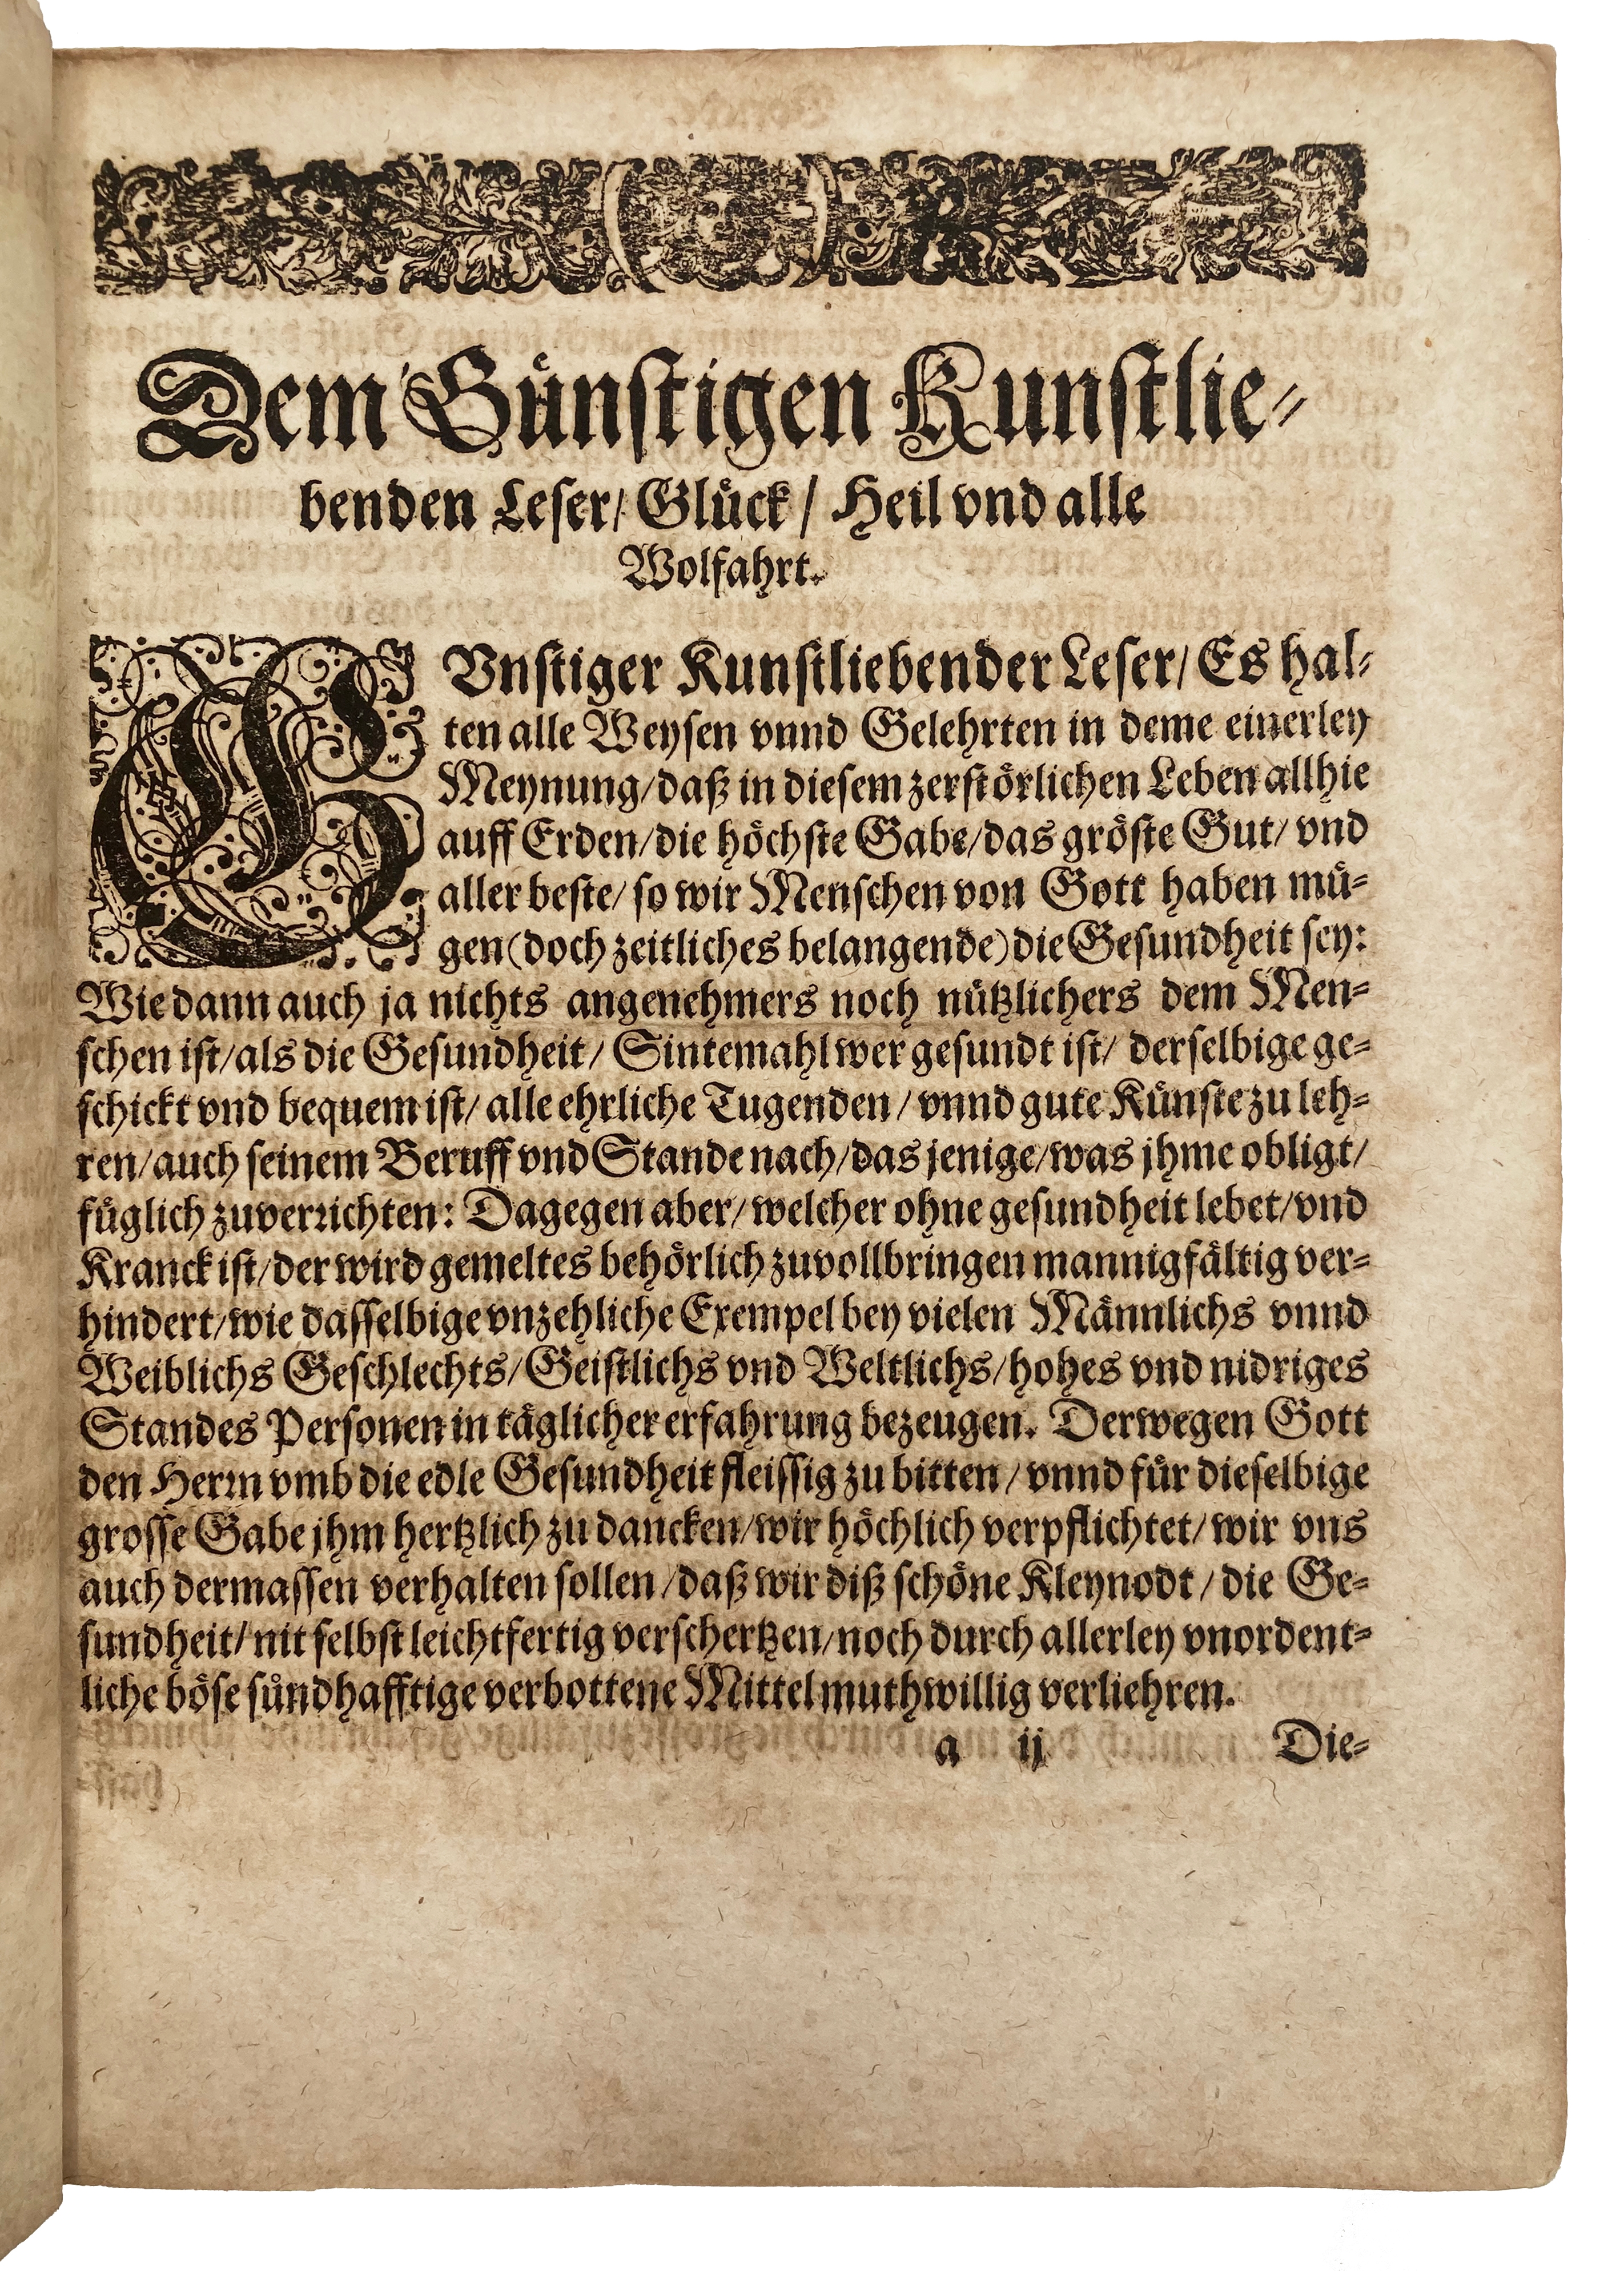 Dem Günstigen Kunstlie-
benden Leser/ Glück/ Heil vnd alle
Wolfahrt.
GVnstiger Kunstliebender Leser/ Es hal-
ten alle Weysen vnnd Gelehrten in deme einerley
Meynung/ daß in diesem zerstörlichen Leben allhie
auff Erden/ die höchste Gabe/ das gröste Gut/ vnd
aller beste/ so wir Menschen von Gott haben mü-
gen (doch zeitliches belangende) die Gesundheit sey:
Wie dann auch ja nichts angenehmers noch nützlichers dem Men-
schen ist/ als die Gesundheit/ Sintemahl wer gesundt ist/ derselbige ge-
schickt vnd bequem ist/ alle ehrliche Tugenden/ vnnd gute Künste zu leh-
ren/ auch seinem Beruff vnd Stande nach/ das jenige/ was jhme obligt/
füglich zuverrichten: Dagegen aber/ welcher ohne gesundheit lebet/ vnd
Kranck ist/ der wird gemeltes behörlich zuvollbringen mannigfältig ver-
hindert/ wie dasselbige vnzehliche Exempel bey vielen Männlichs vnnd
Weiblichs Geschlechts/ Geistlichs vnd Weltlichs/ hohes vnd nidriges
Standes Personen in täglicher erfahrung bezeugen. Derwegen Gott
den Herrn vmb die edle Gesundheit fleissig zu bitten/ vnnd für dieselbige
grosse Gabe jhm hertzlich zu dancken/ wir höchlich verpflichtet/ wir vns
auch dermassen verhalten sollen/ daß wir diß schöne Kleynodt/ die Ge-
sundheit/ nit selbst leichtfertig verschertzen/ noch durch allerley vnordent-
liche böse sündhafftige verbottene Mittel muthwillig verliehren.
a ij Die-